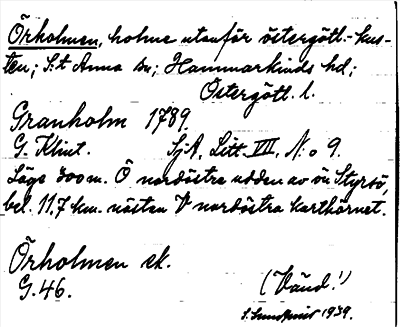 Örholmen, holme utanför östergötl.-kus-
ten; S:t Anna sn; Hammarkinds hd;
Östergötl. l.
Granholm 1789.
G. Klint. SjA, Litt. VIII, N:o 9.
Läge 800 m. Ö nordöstra udden av ön Styrsö,
bel. 11,7 km. nästan V nordöstra karthörnet.
Örholmen ek.
G. 46.
(Vänd!)
S. Sundqvist 1939.